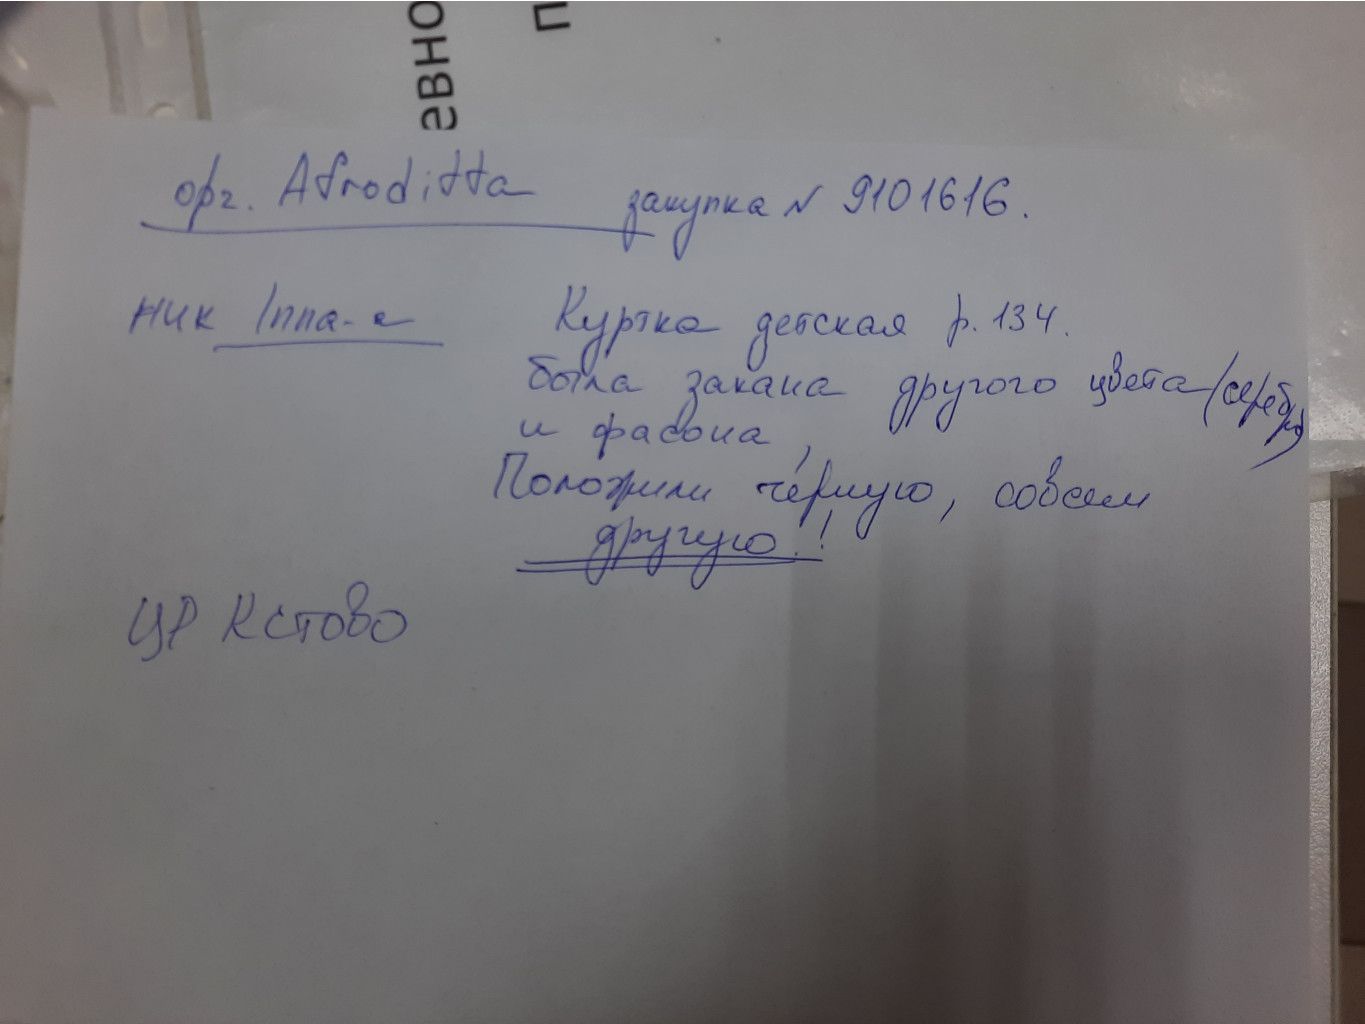 евно
п
орг. Afroditta закупка N 9101616.
ник Inna-e Куртка детская р. 134.
была закана другого цвета (серебро)
и фасона,
Положили чёрную, совсем
другую!!
ЦР Кстово